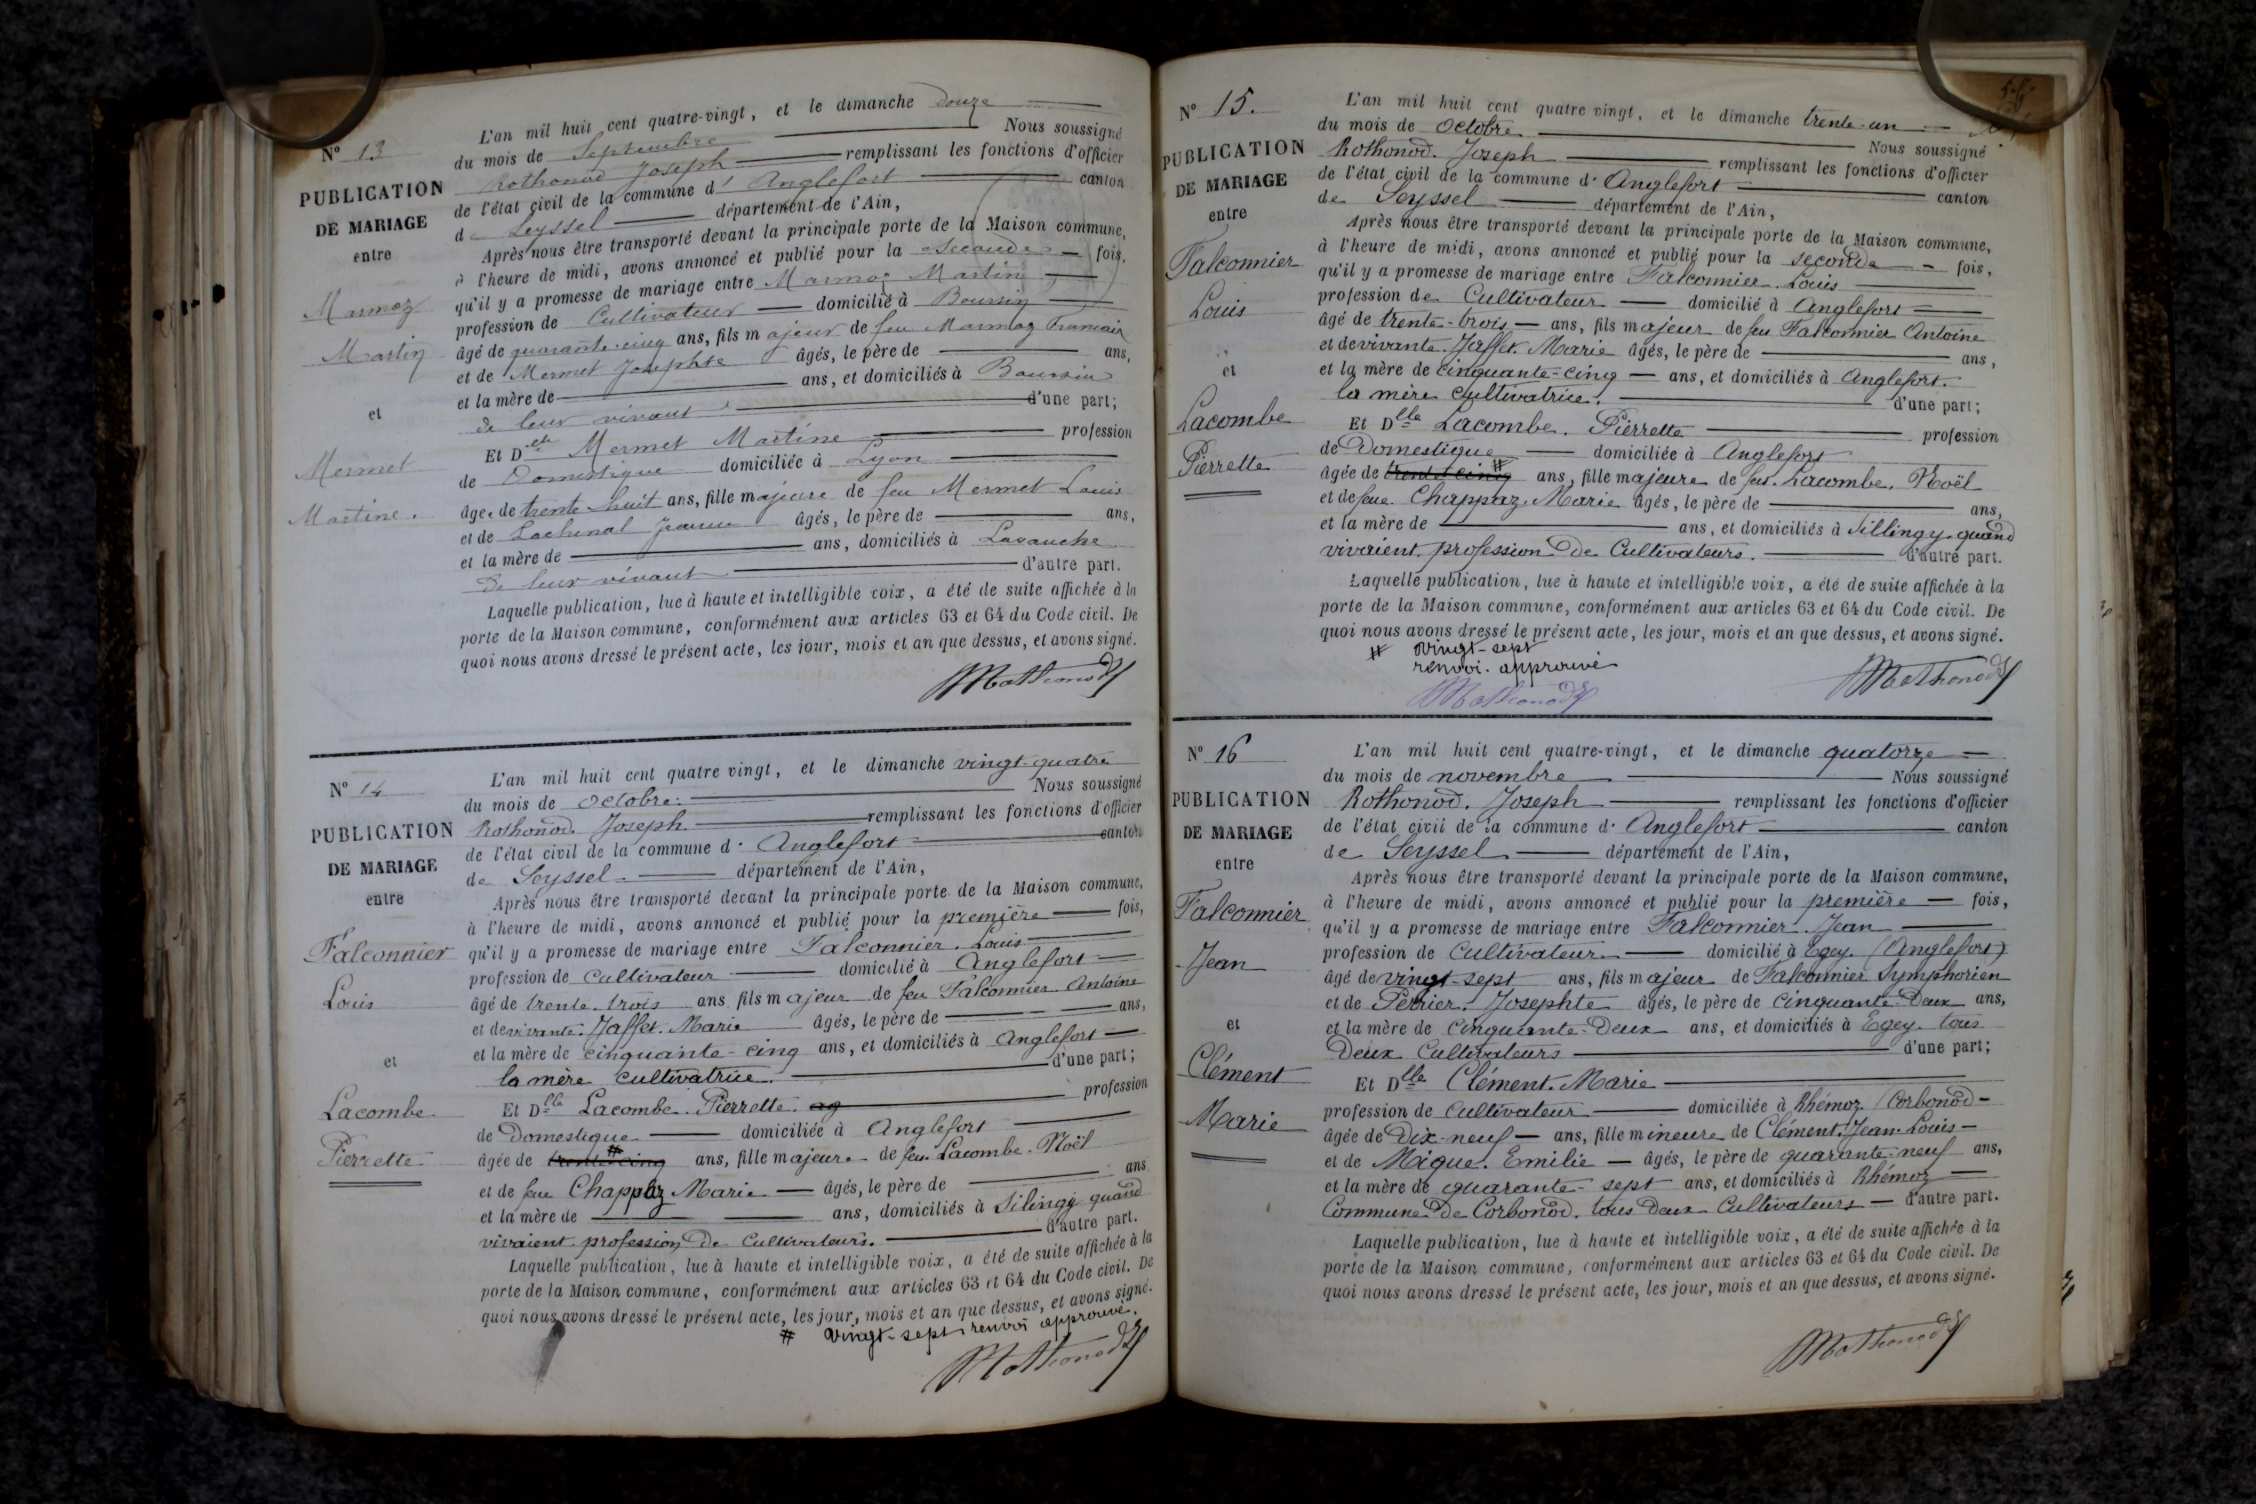 N° 13
PUBLICATION
DE MARIAGE
entre
Marmoz
Martin
et
Mermet
Martine.
L'an mil huit cent quatre-vingt, et le dimanche douze
du mois de Septembre Nous soussigné
Rothonod Joseph remplissant les fonctions d'officier
de l'état civil de la commune d' Anglefort canton
de Seyssel département de l'Ain,
Après nous être transporté devant la principale porte de la Maison commune,
à l'heure de midi, avons annoncé et publié pour la seconde fois,
qu'il y a promesse de mariage entre Marmoz Martin
profession de Cultivateur domicilié à Boursin
âgé de quarante-cinq ans, fils majeur de feu Marmoz François
et de Mermet Josephte âgés, le père de ans,
et la mère de ans, et domiciliés à Boursin
de leur vivant d'une part;
Et Delle Mermet Martine profession
de Domestique domiciliée à Lyon
âgée de trente huit ans, fille majeure de feu Mermet Louis
et de Lachenal Jeanne âgés, le père de ans,
et la mère de ans, domiciliés à Lavanche
de leur vivant d'autre part.
Laquelle publication, lue à haute et intelligible voix, a été de suite affichée à la
porte de la Maison commune, conformément aux articles 63 et 64 du Code civil. De
quoi nous avons dressé le présent acte, les jour, mois et an que dessus, et avons signé.
Rothonod
N° 14
PUBLICATION
DE MARIAGE
entre
Falconnier
Louis
et
Lacombe
Pierrette
L'an mil huit cent quatre vingt, et le dimanche vingt-quatre
du mois de octobre. Nous soussigné
Rothonod. Joseph remplissant les fonctions d'officier
de l'état civil de la commune d' Anglefort canton
de Seyssel. département de l'Ain,
Après nous être transporté devant la principale porte de la Maison commune,
à l'heure de midi, avons annoncé et publié pour la première fois,
qu'il y a promesse de mariage entre Falconnier. Louis
profession de cultivateur domicilié à Anglefort
âgé de trente-trois ans fils majeur de feu Falconnier Antoine
et de vivante. Jaffet. Marie âgés, le père de ans,
et la mère de cinquante-cinq ans, et domiciliés à Anglefort
la mère cultivatrice. d'une part;
Et Dlle Lacombe. Pierrette. ag profession
de Domestique domiciliée à Anglefort
âgée de trente-cinq # ans, fille majeure de feu Lacombe. Noël
et de feue Chappaz Marie âgés, le père de ans
et la mère de ans, domiciliés à Silingy quand
vivaient profession de cultivateurs. d'autre part.
Laquelle publication, lue à haute et intelligible voix, a été de suite affichée à la
porte de la Maison commune, conformément aux articles 63 et 64 du Code civil. De
quoi nous avons dressé le présent acte, les jour, mois et an que dessus, et avons signé.
# vingt-sept renvoi approuvé.
Rothonod
N° 15.
PUBLICATION
DE MARIAGE
entre
Falconnier
Louis
et
Lacombe
Pierrette
L'an mil huit cent quatre vingt, et le dimanche trente-un
du mois de octobre Nous soussigné
Rothonod. Joseph remplissant les fonctions d'officier
de l'état civil de la commune d' Anglefort canton
de Seyssel département de l'Ain,
Après nous être transporté devant la principale porte de la Maison commune,
à l'heure de midi, avons annoncé et publié pour la seconde fois,
qu'il y a promesse de mariage entre Falconnier. Louis
profession de Cultivateur domicilié à Anglefort
âgé de trente-trois ans, fils majeur de feu Falconnier Antoine
et de vivante. Jaffet. Marie âgés, le père de ans,
et la mère de cinquante-cinq ans, et domiciliés à Anglefort.
la mère cultivatrice. d'une part;
Et Dlle Lacombe. Pierrette profession
de Domestique domiciliée à Anglefort
âgée de trente cinq # ans, fille majeure de feu. Lacombe. Noël
et de feue Chappaz. Marie âgés, le père de ans,
et la mère de ans, et domiciliés à Sillingy quand
vivaient. profession de Cultivateurs. d'autre part.
Laquelle publication, lue à haute et intelligible voix, a été de suite affichée à la
porte de la Maison commune, conformément aux articles 63 et 64 du Code civil. De
quoi nous avons dressé le présent acte, les jour, mois et an que dessus, et avons signé.
# vingt-sept
renvoi. approuvé
Rothonod
Rothonod
N° 16
PUBLICATION
DE MARIAGE
entre
Falconnier
Jean
et
Clément
Marie
L'an mil huit cent quatre-vingt, et le dimanche quatorze
du mois de novembre Nous soussigné
Rothonod. Joseph remplissant les fonctions d'officier
de l'état civil de la commune d' Anglefort canton
de Seyssel département de l'Ain,
Après nous être transporté devant la principale porte de la Maison commune,
à l'heure de midi, avons annoncé et publié pour la première fois,
qu'il y a promesse de mariage entre Falconnier. Jean
profession de cultivateur domicilié à Egey. (Anglefort)
âgé de vingt-sept ans, fils majeur de Falconnier Symphorien
et de Perrier. Josephte âgés, le père de cinquante-deux ans,
et la mère de cinquante-deux ans, et domiciliés à Egey. tous
deux cultivateurs d'une part;
Et Dlle Clément. Marie
profession de cultivateur domiciliée à Rhémoz (Corbonod
âgée de Dix-neuf ans, fille mineure de Clément. Jean-Louis
et de Mique. Emilie âgés, le père de quarante-neuf ans,
et la mère de quarante-sept ans, et domiciliés à Rhémoz
Commune de Corbonod. tous deux Cultivateurs d'autre part.
Laquelle publication, lue à haute et intelligible voix, a été de suite affichée à la
porte de la Maison commune, conformément aux articles 63 et 64 du Code civil. De
quoi nous avons dressé le présent acte, les jour, mois et an que dessus, et avons signé.
Rothonod